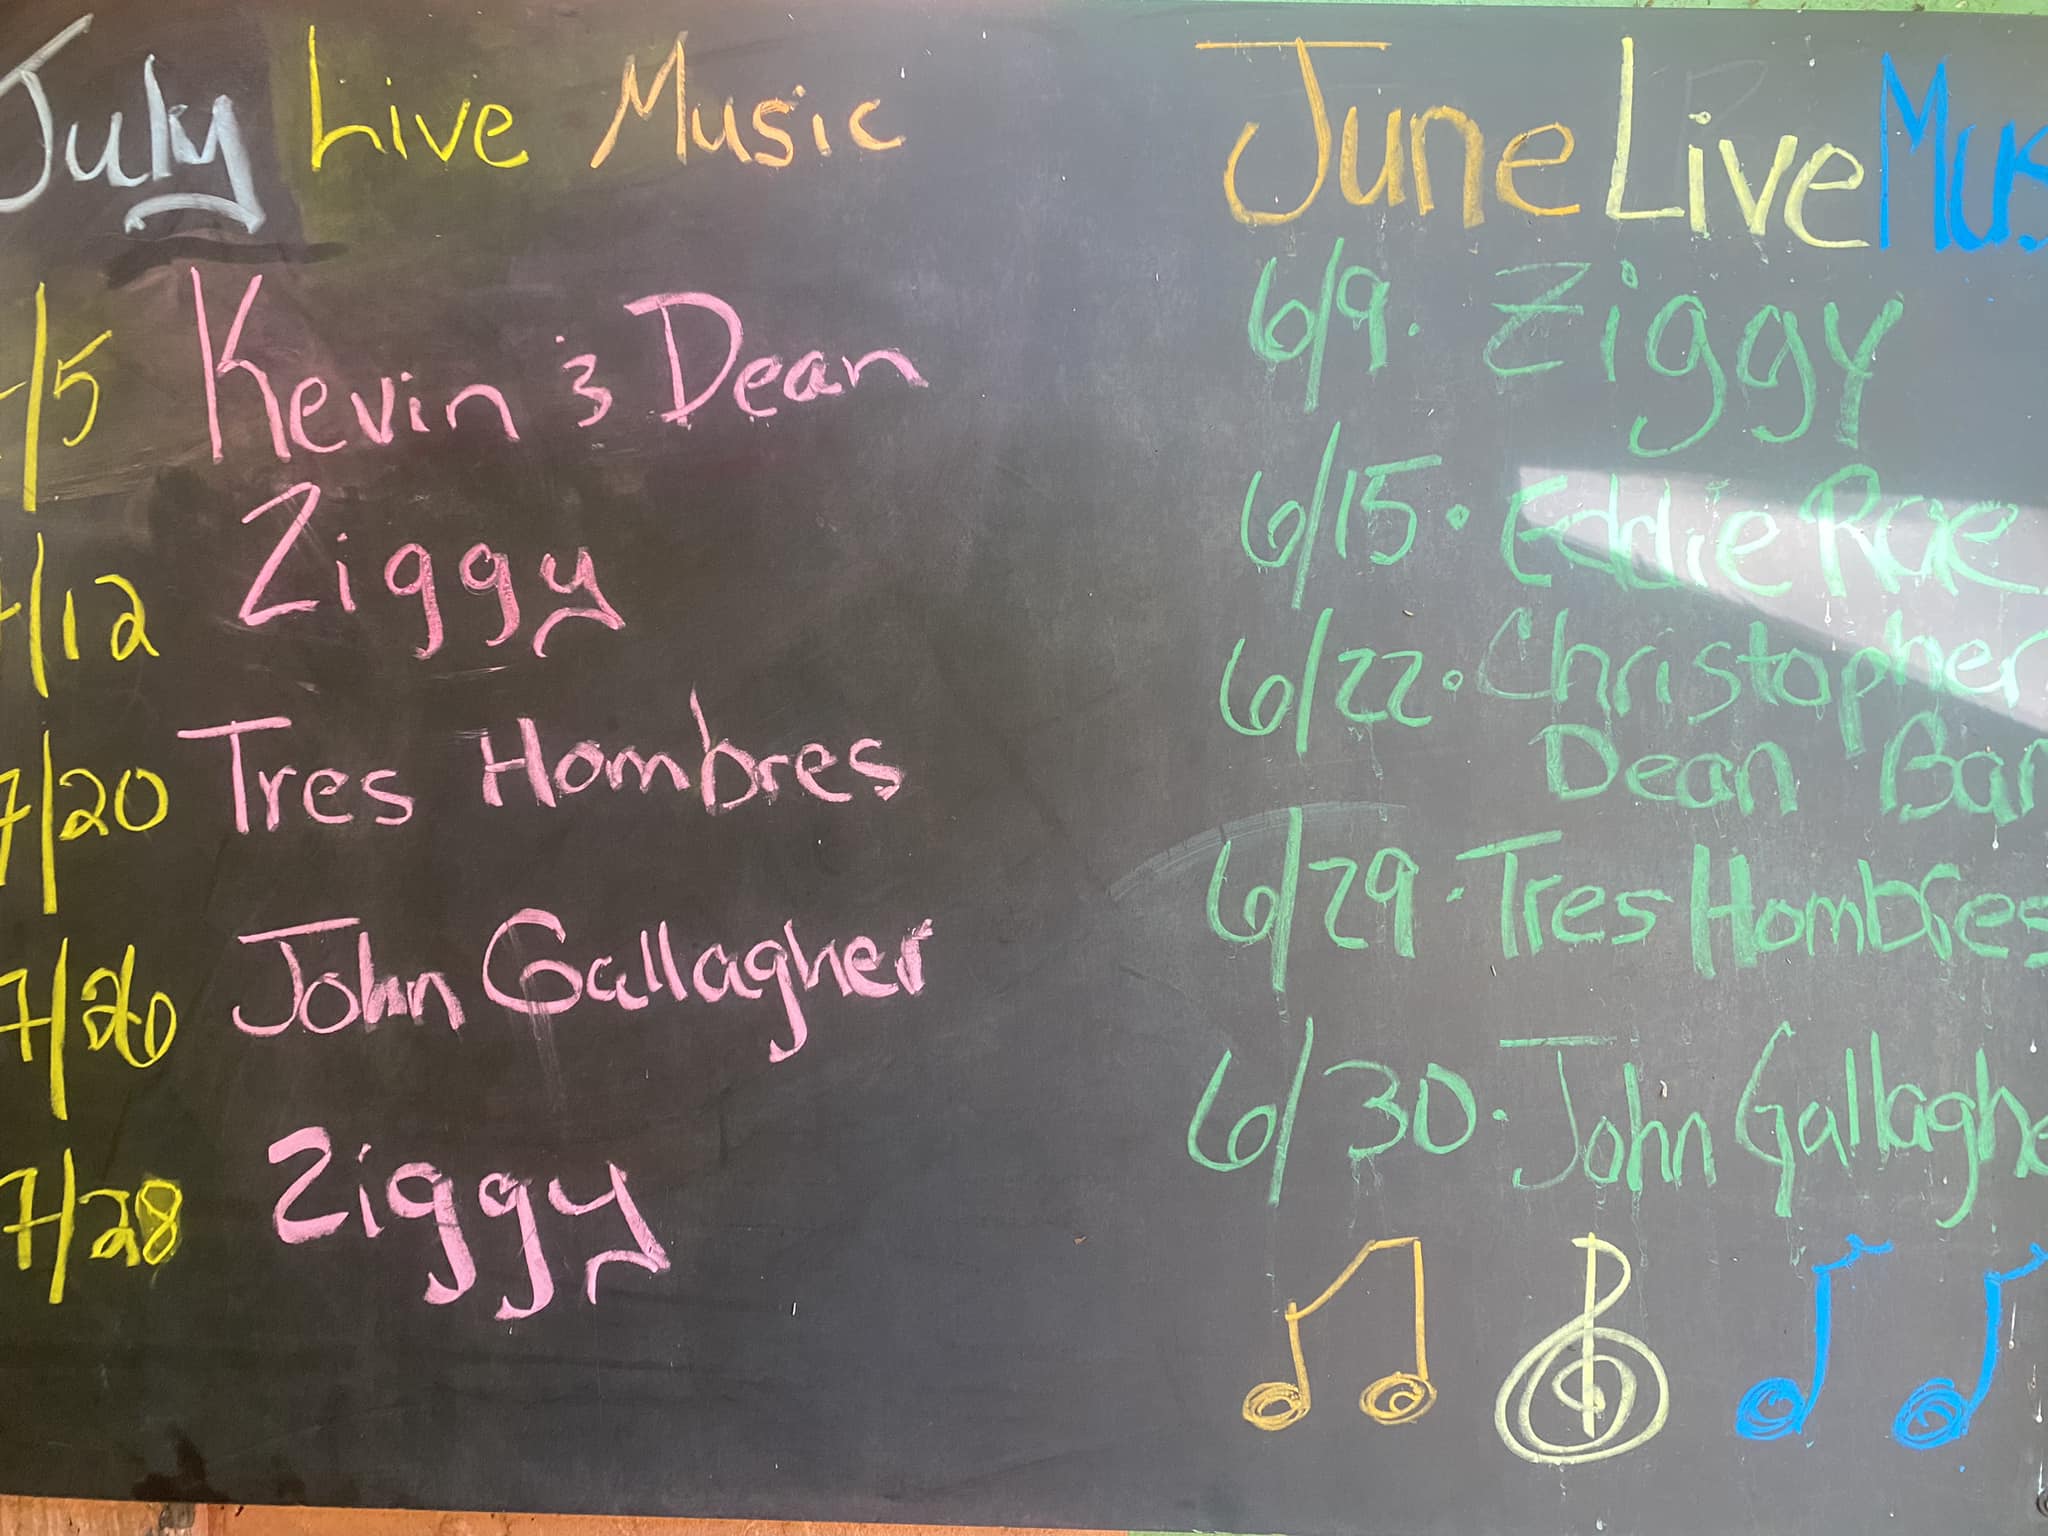 July Live Music
/5 Kevin & Dean
/12 Ziggy
7/20 Tres Hombres
7/26 John Gallagher
7/28 Ziggy
June Live Mus
6/9. Ziggy
6/15. Eddie Rae
6/22. Christopher
Dean Ban
6/29. Tres Hombres
6/30. John Gallaghe